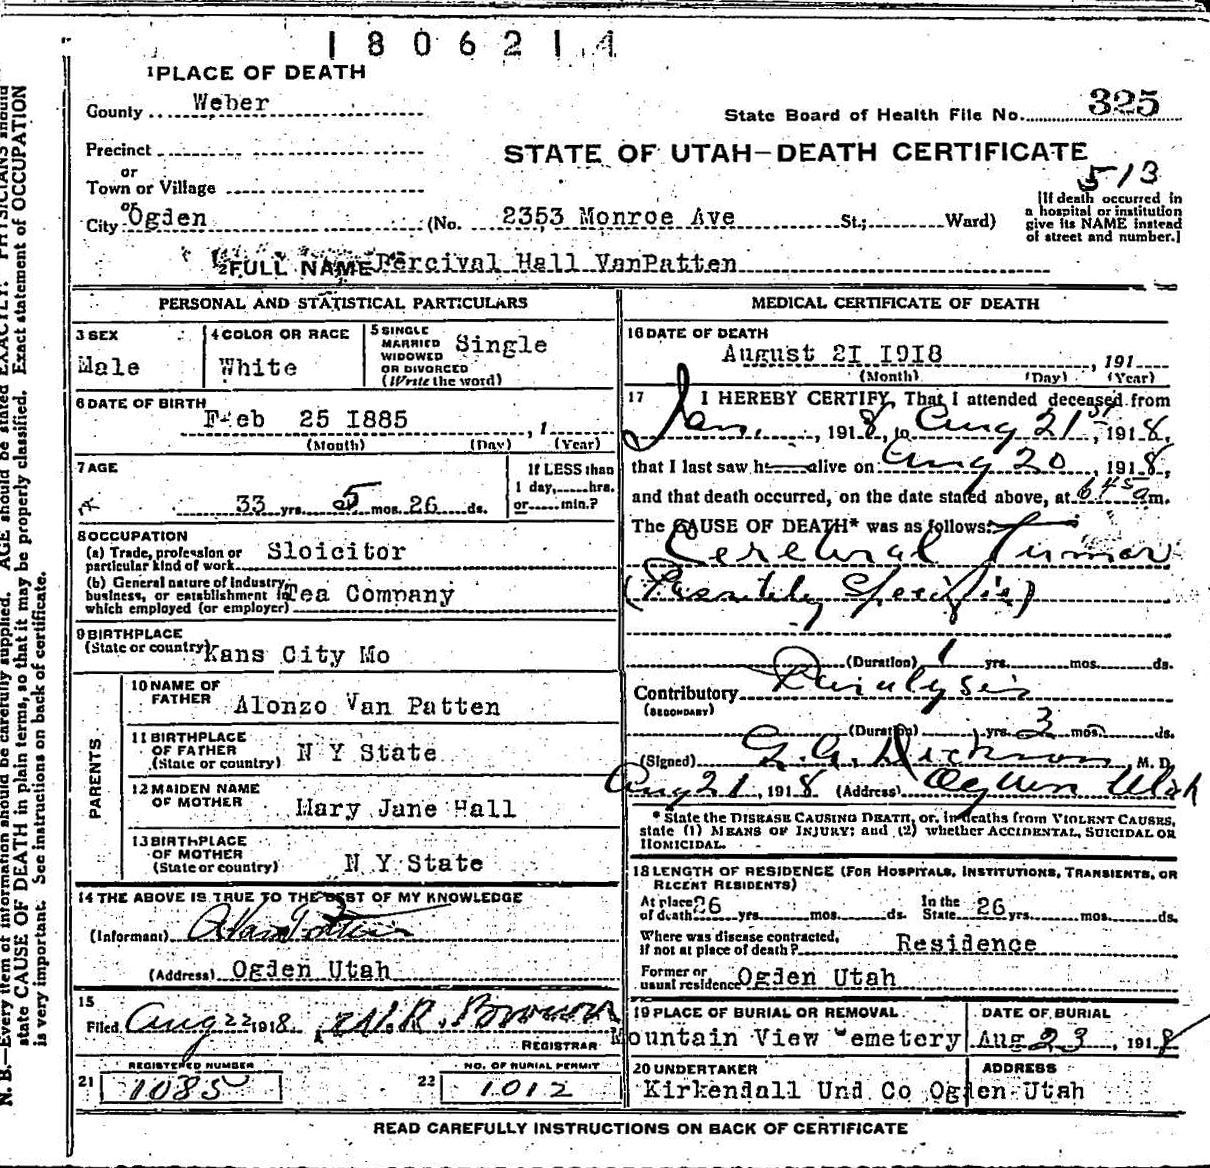 1806214
1 PLACE OF DEATH
County Weber
State Board of Health File No. 325
Precinct
or
Town or Village
or
City Ogden (No. 2353 Monroe Ave St.; Ward)
STATE OF UTAH—DEATH CERTIFICATE
513
[If death occurred in
a hospital or institution
give its NAME instead
of street and number.]
2 FULL NAME Percival Hall VanPatten
PERSONAL AND STATISTICAL PARTICULARS
3 SEX
Male
4 COLOR OR RACE
White
5 SINGLE
MARRIED
WIDOWED
OR DIVORCED
(Write the word)
Single
6 DATE OF BIRTH
Feb 25 1885 , 1
(Month) (Day) (Year)
7 AGE
33 yrs. 5 mos. 26 ds.
If LESS than
1 day, hrs.
or min.?
8 OCCUPATION
(a) Trade, profession or
particular kind of work Sloicitor
(b) General nature of industry,
business, or establishment in
which employed (or employer) Tea Company
9 BIRTHPLACE
(State or country) Kans City Mo
PARENTS
10 NAME OF
FATHER Alonzo Van Patten
11 BIRTHPLACE
OF FATHER
(State or country) N Y State
12 MAIDEN NAME
OF MOTHER Mary Jane Hall
13 BIRTHPLACE
OF MOTHER
(State or country) N Y State
14 THE ABOVE IS TRUE TO THE BEST OF MY KNOWLEDGE
(Informant) A Van Patten
(Address) Ogden Utah
15
Filed Aug 22 1918. W.R. Brown
REGISTRAR
REGISTERED NUMBER
21 1085
NO. OF BURIAL PERMIT
22 1012
MEDICAL CERTIFICATE OF DEATH
16 DATE OF DEATH
August 21 1918 , 191
(Month) (Day) (Year)
17 I HEREBY CERTIFY, That I attended deceased from
Jan. , 1918, to Aug 21st, 1918,
that I last saw h alive on Aug 20 , 1918,
and that death occurred, on the date stated above, at 6 45 a m.
The CAUSE OF DEATH* was as follows:
Cerebral Tumor
(Possibly Specific)
(Duration) 1 yrs. mos. ds.
Contributory Paralysis
(SECONDARY)
(Duration) yrs. 3 mos. ds.
(Signed) G.A. Dickson, M. D.
Aug 21, 1918 (Address) Ogden Utah
* State the DISEASE CAUSING DEATH, or, in deaths from VIOLENT CAUSES,
state (1) MEANS OF INJURY; and (2) whether ACCIDENTAL, SUICIDAL OR
HOMICIDAL.
18 LENGTH OF RESIDENCE (FOR HOSPITALS, INSTITUTIONS, TRANSIENTS, OR
RECENT RESIDENTS)
At place
of death 26 yrs. mos. ds.
In the
State 26 yrs. mos. ds.
Where was disease contracted,
if not at place of death? Residence
Former or
usual residence Ogden Utah
19 PLACE OF BURIAL OR REMOVAL
Mountain View Cemetery
DATE OF BURIAL
Aug 23 , 1918
20 UNDERTAKER ADDRESS
Kirkendall Und Co Ogden Utah
READ CAREFULLY INSTRUCTIONS ON BACK OF CERTIFICATE
N. B.—Every item of information should be carefully supplied. AGE should be stated EXACTLY. PHYSICIANS should
state CAUSE OF DEATH in plain terms, so that it may be properly classified. Exact statement of OCCUPATION
is very important. See instructions on back of certificate.